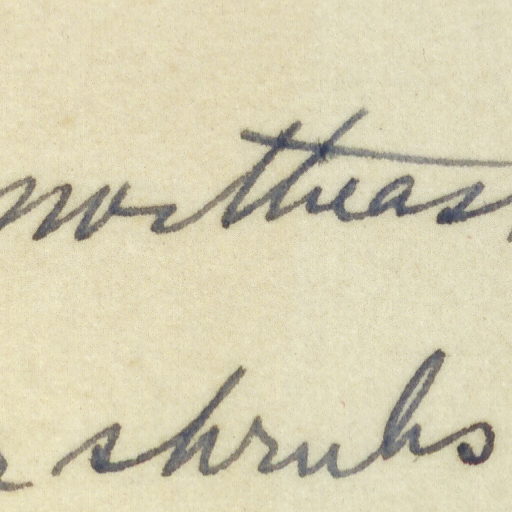 northeas
shrubs